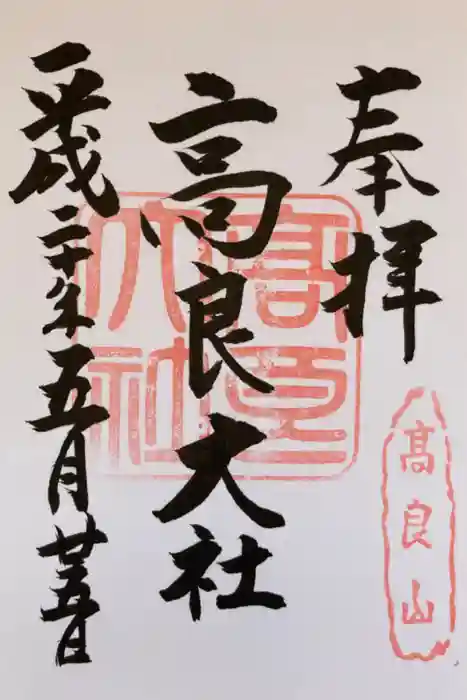 奉拝
髙良山
高良大社
高良
大社
平成二十年五月廿五日